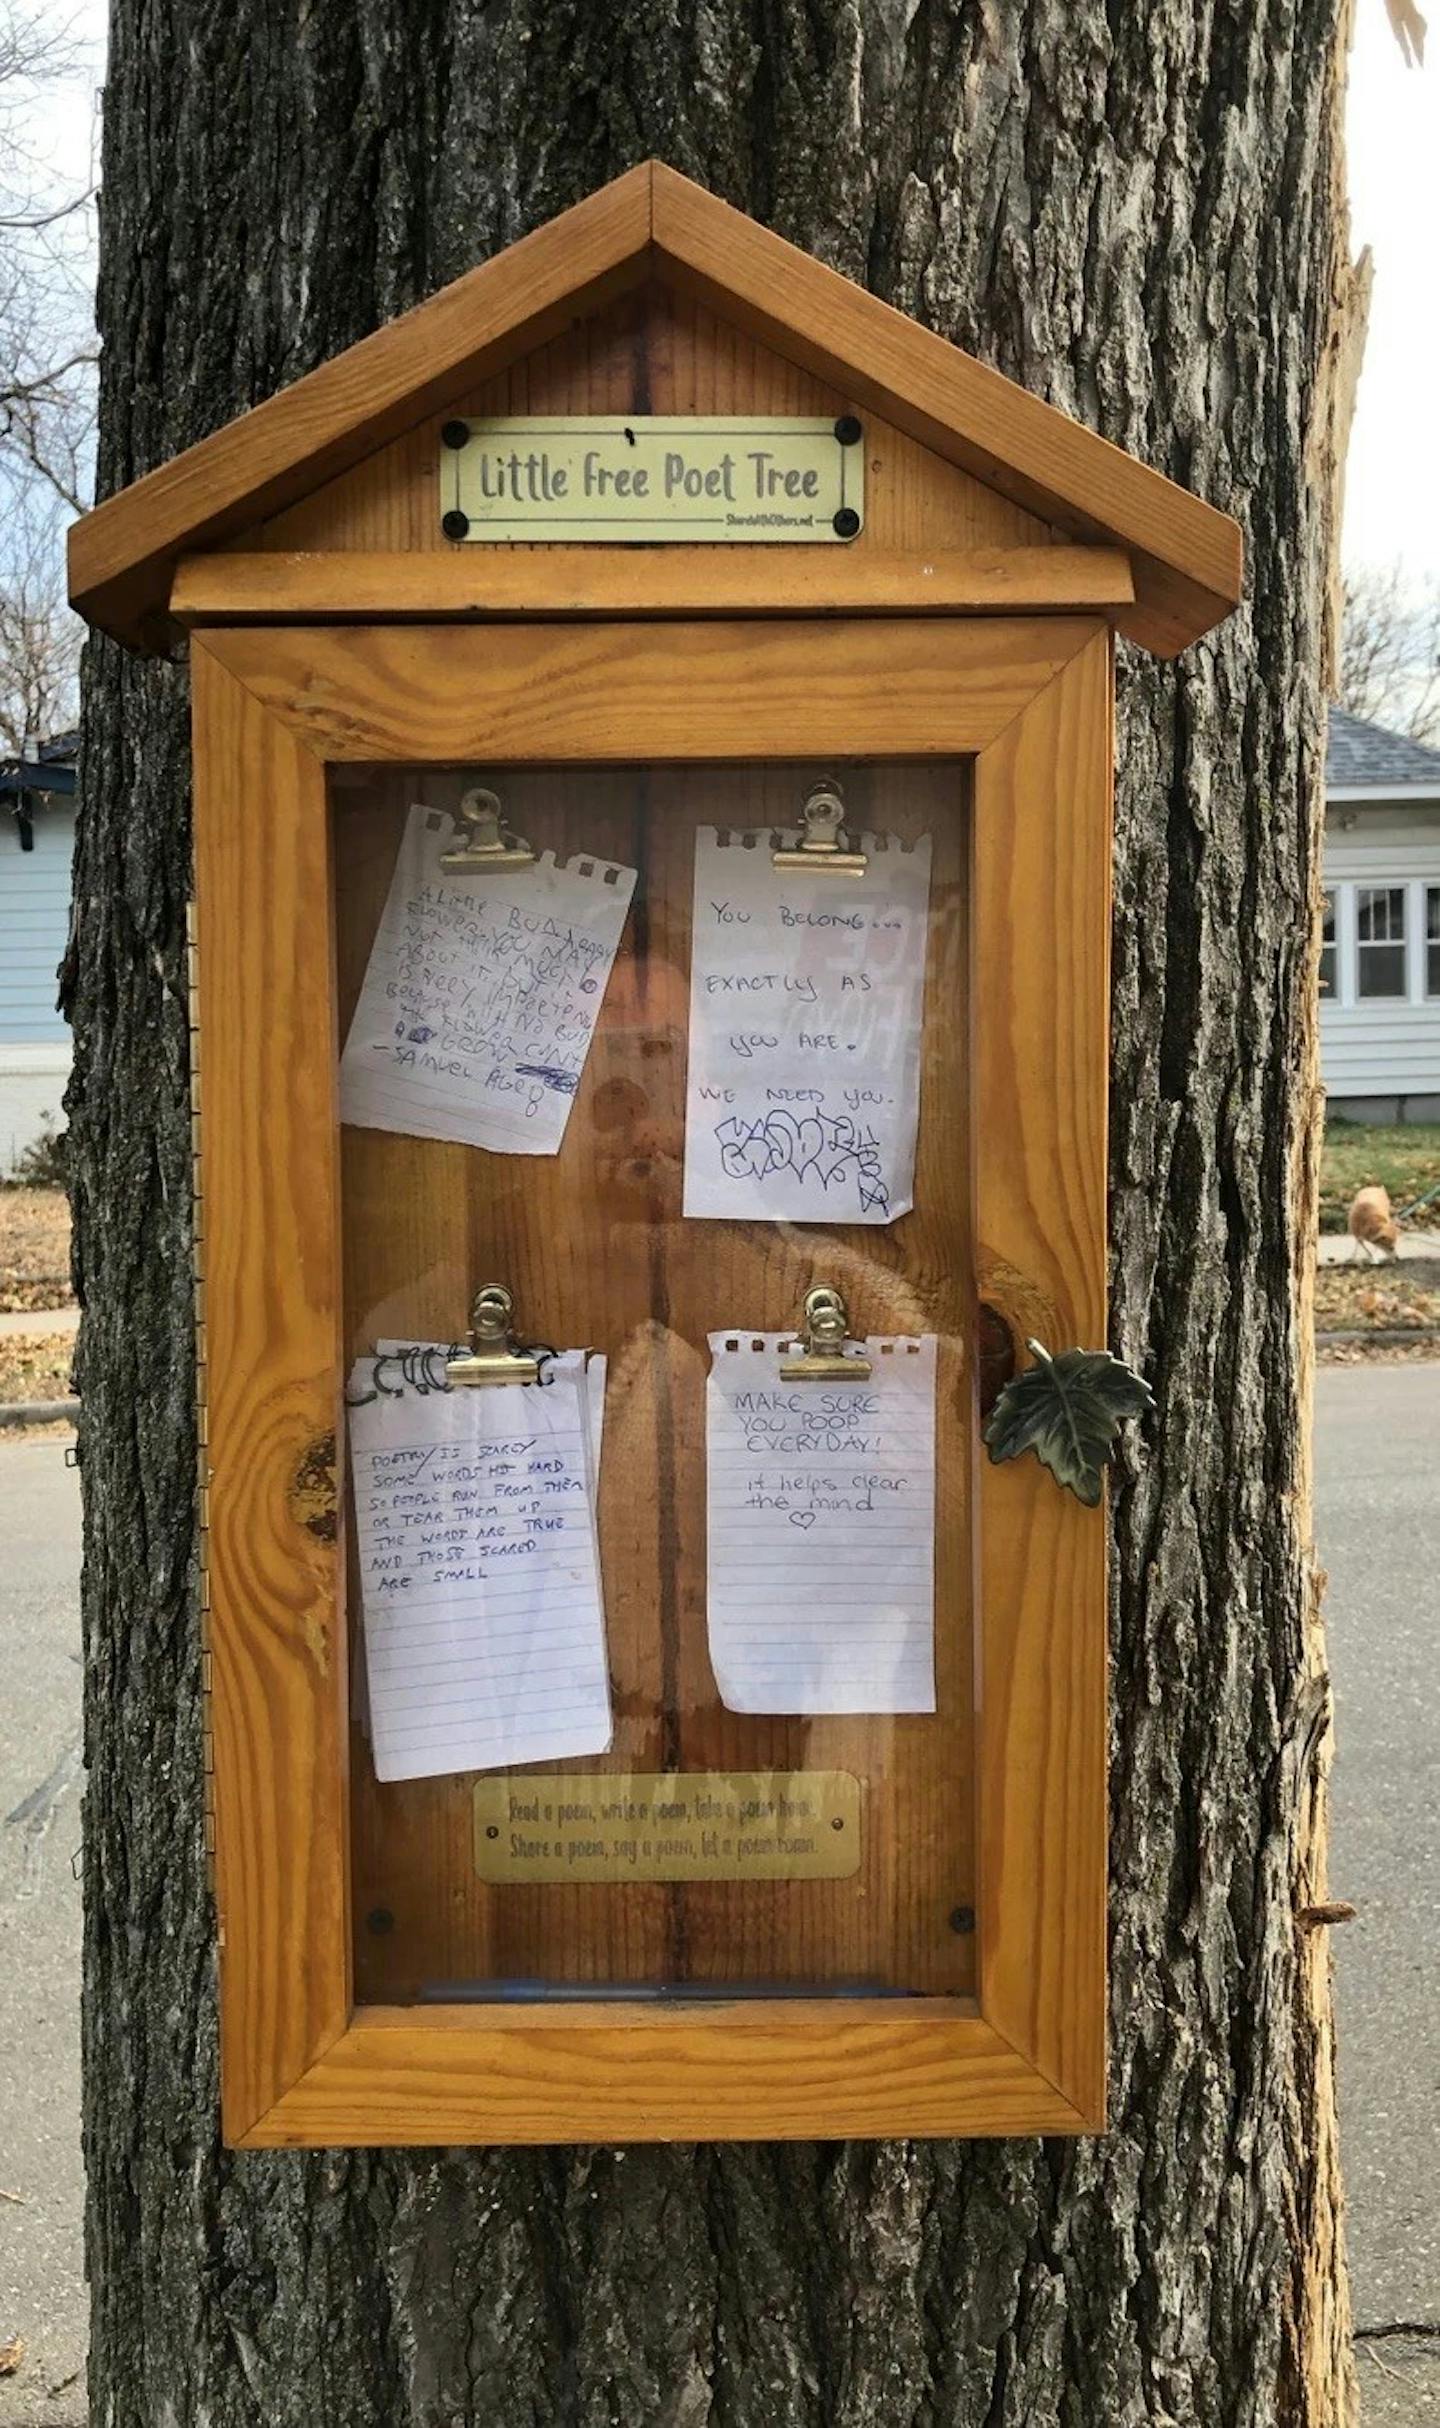 Little Free Poet Tree
ShareWithOthers.net
A LittLE BUD, A HAPPY
FLOWER, YOU MAY
NOT THINK MUCH
ABOUT it, BUT it
is VERY iMPORTENT
BECAUSE WitH NO BUD
tHE FLOWER
GROW CAN't
-SAMUEL AGE 8
YOU BELONG...
EXACTLY AS
YOU ARE.
WE NEED YOU.
POETRY IS SCARCY
SOME WORDS HIT HARD
SO PEOPLE RUN FROM THEM
OR TEAR THEM UP
THE WORDS ARE TRUE
AND THOSE SCARED
ARE SMALL
MAKE SURE
YOU POOP
EVERYDAY!
it helps clear
the mind
♡
Read a poem, write a poem, take a poem home.
Share a poem, say a poem, let a poem roam.